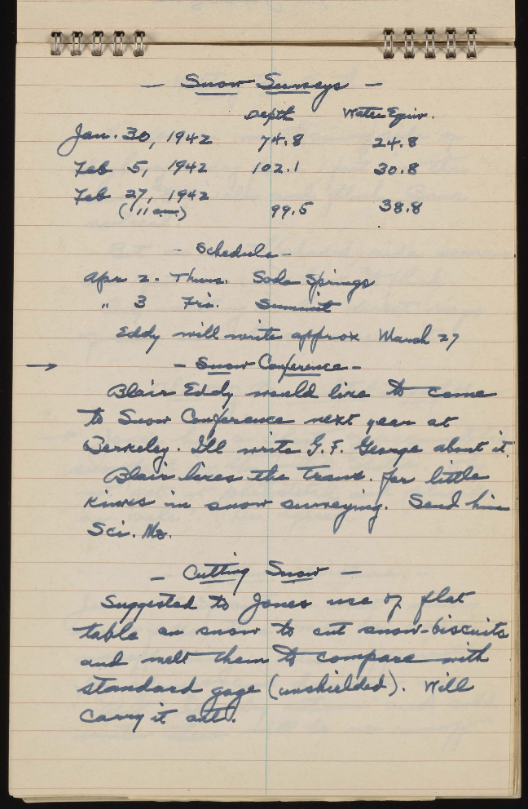 — Snow Surveys —
Depth Water Equiv.
Jan. 30, 1942 74.8 24.8
Feb 5, 1942 102.1 30.8
Feb 27, 1942
(11 am) 99.5 38.8
- Schedule -
Apr 2 - Thurs. Soda Springs
" 3 Fri. Summit
Eddy will write approx March 27
→ - Snow Conference -
Blair Eddy would like to come
to Snow Conference next year at
Berkeley. I'll write G.F. George about it.
Blair likes the Trans. for little
kinks in snow surveying. Send him
Sci. Mo.
— Cutting Snow —
Suggested to Jones use of flat
table on snow to cut snow-biscuits
and melt them to compare with
standard gage (unshielded). Will
carry it out.